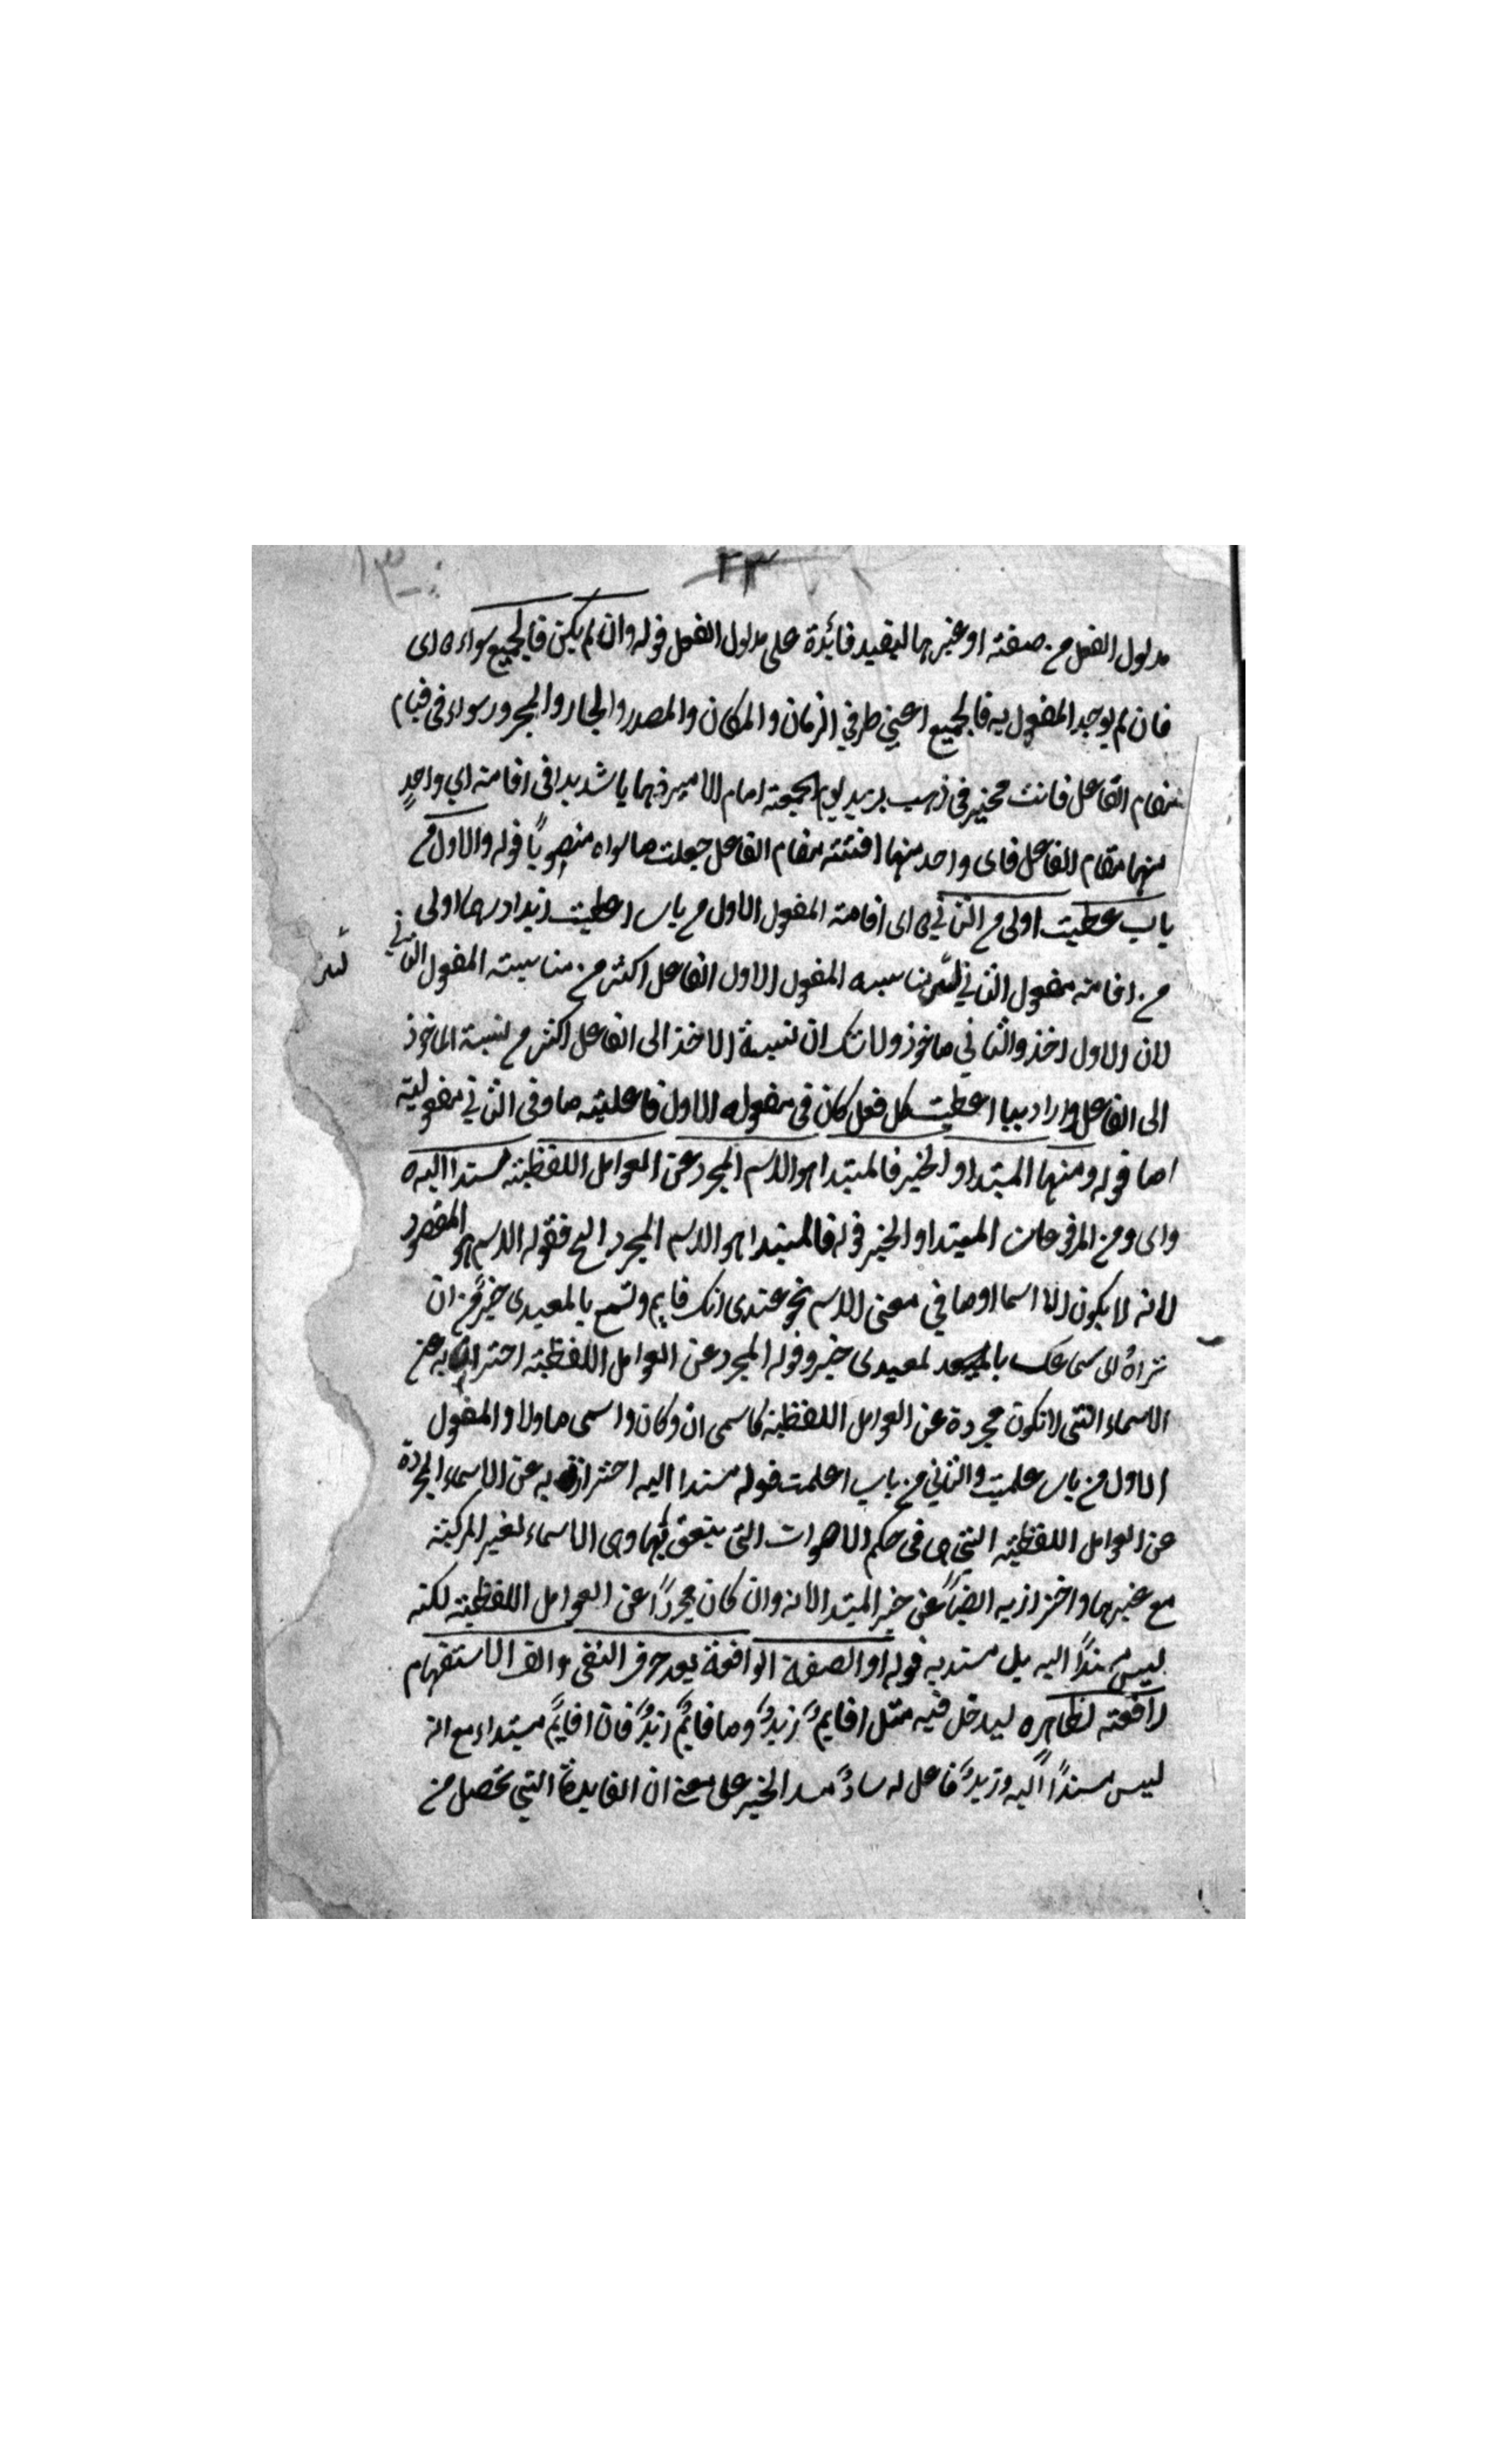 ٢٣
مدلول الفعل من صفته او غيرها ليفيد فائدة على مدلول الفعل قوله وان لم يكن فالجميع سواء ه اى
فان لم يوجد المفعول به فالجميع اعني ظرفي الزمان والمكان والمصدر والجار والمجرور سواء فى قيام
مقام الفاعل فانت مخير فى ذهب بزيد يوم الجمعة امام الامير ذهابا شديدا فى اقامته اي واحدٍ
منهما مقام الفاعل فاى واحد منهما اقمته مقام الفاعل جعلت ما سواه منصوبًا قوله والاول من
باب عطيت اولى من الثاني ه اى اقامته المفعول الاول من باب اعطيت زيدا درهما اولى
من اقامته مفعول الثاني لان مناسبه المفعول الاول الفاعل اكثر من مناسبته المفعول الثاني
لان الاول اخذ والثاني ماخوذ ولا شك ان نسبة الاخذ الى الفاعل اكثر من نسبة الماخوذ
الى الفاعل واراد بباب اعطيت كل فعل كان فى مفعوله الاول فاعليته ما وفى الثاني مفعوليته
اما قوله ومنها المبتدا والخبر فالمبتدا هو الاسم المجرد عن العوامل اللفظيته مسندا اليه ه
واى ومن المرفوعات المبتدا والخبر قوله فالمبتدا هو الاسم المجرد الخ فقوله الاسم هو المقصود
لانه لا يكون الا اسما او ما في معنى الاسم نحو عندى انك قايم وتسمع بالمعيدى خير من ان
تراهُ اى سماعك لمعيدى خير وقوله المجرد عن العوامل اللفظيته احتراز به عن
الاسماء التى لا تكون مجردة عن العوامل اللفظية كاسمى ان وكان واسمى ما ولا والمفعول
الاول من باب علمت والثاني من باب اعلمت قوله مسندا اليه احتراز به عن الاسماء المجردة
عن العوامل اللفظيته التى هى فى حكم الاصوات التى ينعق بها وهى الاسماء لغير المركبته
مع غيرها واحترازبه ايضًا عن خبر المبتدا لانه وان كان مجردًا عن العوامل اللفظيته لكنه
ليس مسندًا اليه بل مسند به قوله او الصفة الواقعة بعد حرف النفى والف الاستفهام
رافعته لظاهره ليدخل فيه مثل اقايمٌ زيدٌ وما قايمٌ زيدٌ فان اقايمٌ مبتداء مع انه
ليس مسندًا اليه وزيدٌ فاعل له سادٌ مسد الخبر على معنى ان الفايدة التي تحصل من